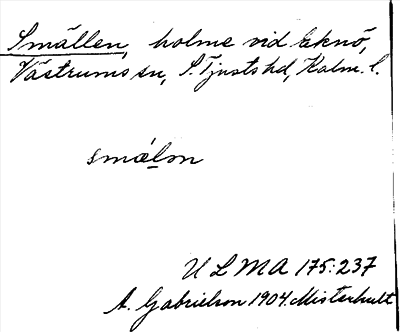 Smällen, holme vid Eknö,
Västrums sn, S. Tjusts hd, Kalm. l.
smælon
ULMA 175:237
A. Gabrielson 1904. Misterhult